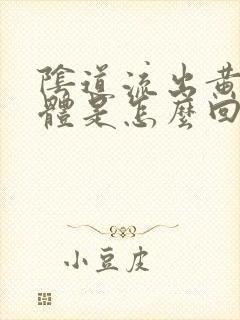 陰道流出黃
體是怎麼回
小豆皮